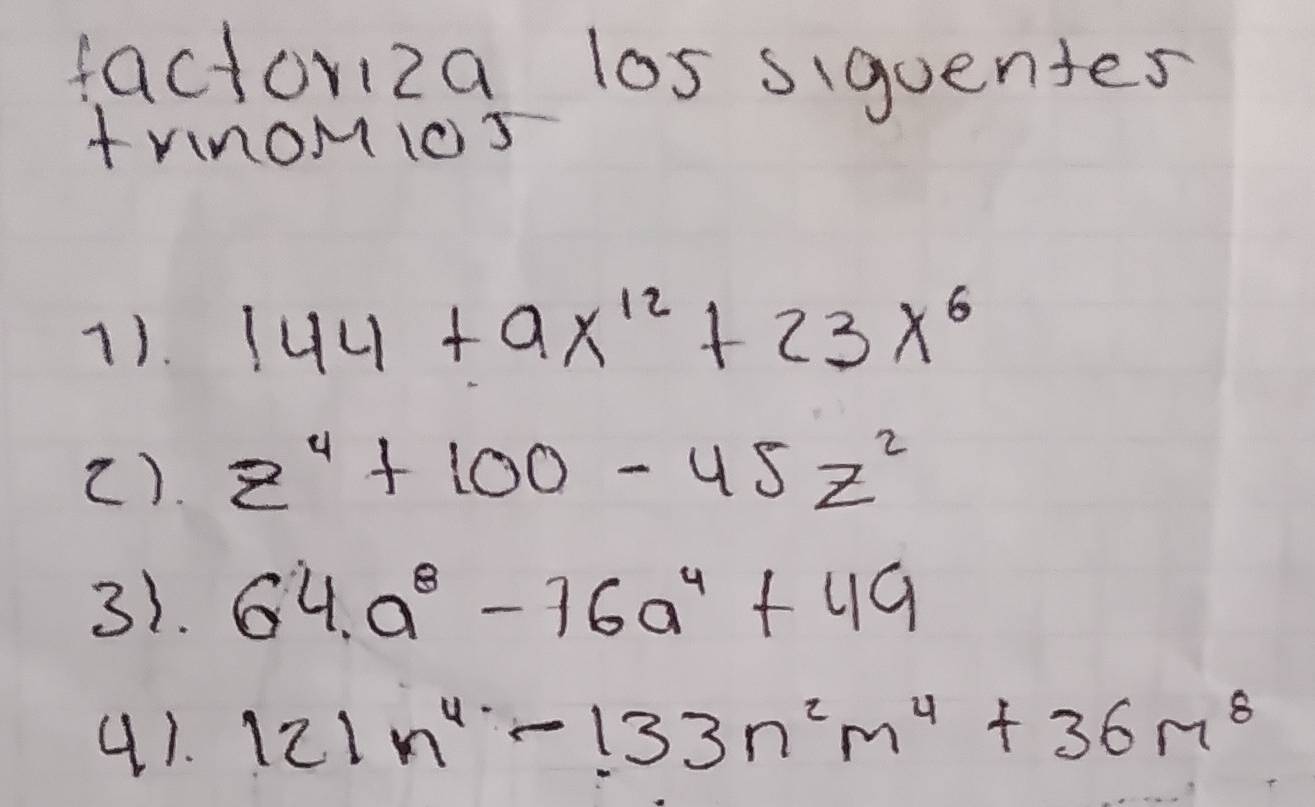 factoriza los siguentes
trinomios
1). 144 + 9x¹² + 23x⁶
2). z⁴ + 100 - 45z²
3). 64a⁸ - 76a⁴ + 49
4). 121n⁴ - 133n²m⁴ + 36m⁸